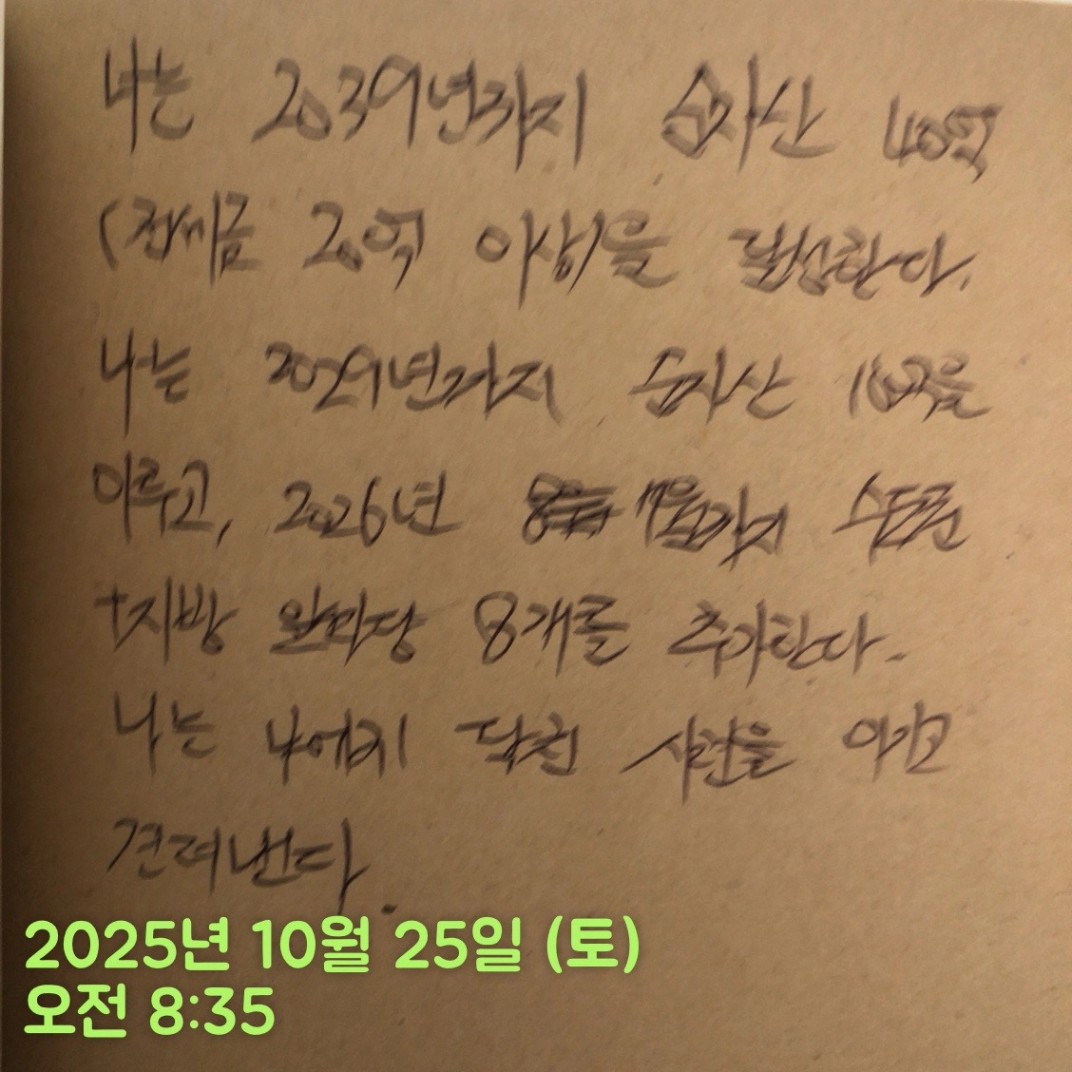 나는 2039년까지 순자산 40억
(전세금 20억 이상)을 달성한다.
나는 2029년까지 순자산 10억을
이루고, 2026년 까지 수도권
+지방 앞마당 8개를 추가한다.
나는 나에게 닥친 시련을 이기고
견뎌낸다.
2025년 10월 25일 (토)
오전 8:35